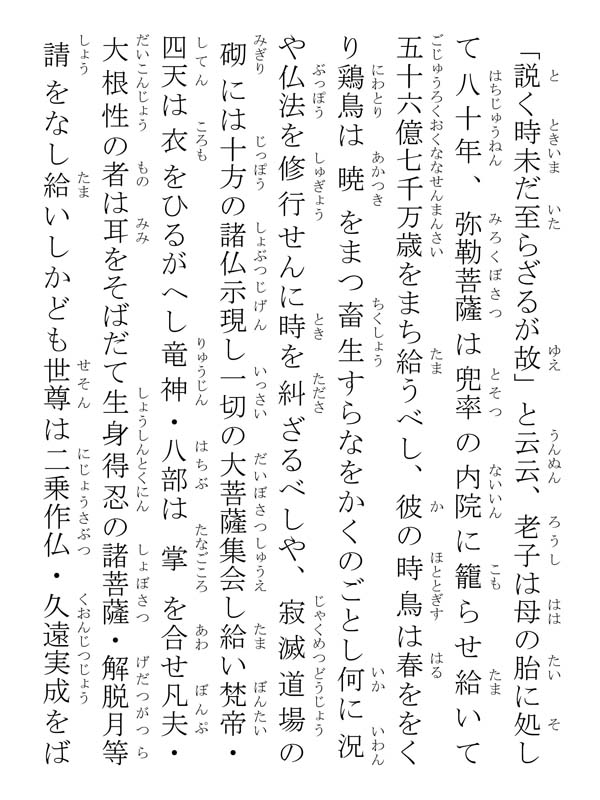 「説く時未だ至らざるが故」と云云、老子は母の胎に処し
て八十年、弥勒菩薩は兜率の内院に籠らせ給いて
五十六億七千万歳をまち給うべし、彼の時鳥は春ををく
り鶏鳥は暁をまつ畜生すらなをかくのごとし何に況
や仏法を修行せんに時を糾ざるべしや、寂滅道場の
砌には十方の諸仏示現し一切の大菩薩集会し給い梵帝・
四天は衣をひるがへし竜神・八部は掌を合せ凡夫・
大根性の者は耳をそばだて生身得忍の諸菩薩・解脱月等
請をなし給いしかども世尊は二乗作仏・久遠実成をば